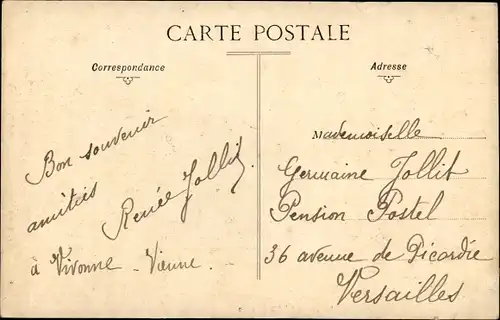 CARTE POSTALE
Correspondance
Bon souvenir
amitiés
Renée Jollit
à Vivonne - Vienne.
Adresse
Mademoiselle
Germaine Jollit
Pension Postel
36 avenue de Picardie
Versailles